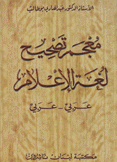 الأستاذ الدكتور عبد الهادي بوطالب
معجم تصحيح
لغة الإعلام
عربي - عربي
مكتبة لبنان ناشرون